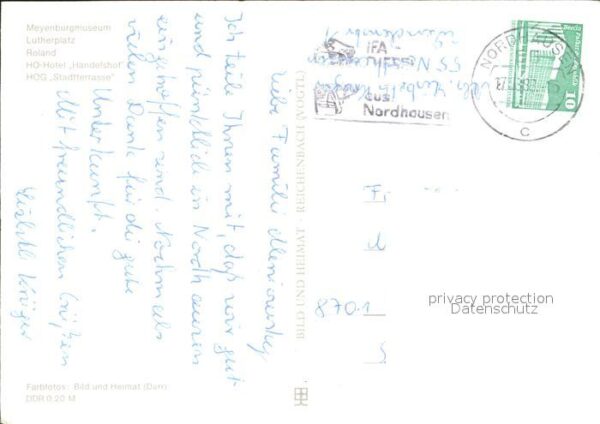 Meyenburgmuseum
Lutherplatz
Roland
HO-Hotel „Handelshof"
HOG „Stadtterrasse"
Liebe Familie
Ich teile Ihnen mit, daß wir gut
und pünktlich in Nordhausen
eingetroffen sind. Nochmals
vielen Dank für die gute
Unterkunft.
Mit freundlichen Grüßen
Krüger
BILD UND HEIMAT · REICHENBACH (VOGTL)
Farbfotos: Bild und Heimat (Darr)
DDR 0,20 M
IFA
aus
Nordhausen
NORDHAUSEN
c
10
55 Nordhausen
8701
privacy protection
Datenschutz